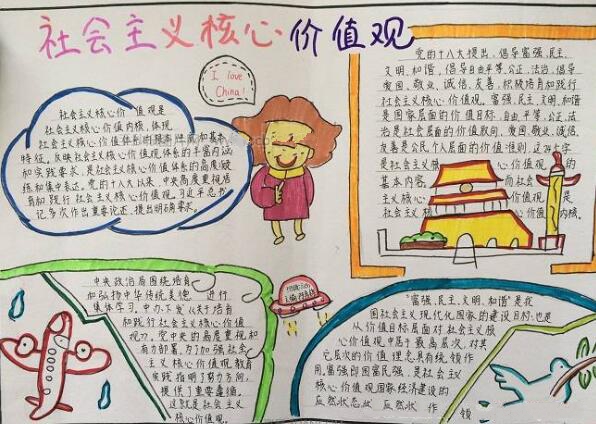 社会主义核心价值观
I love
China!
社会主义核心价值观是
社会主义核心价值内核,体现
社会主义核心价值体系的根本性质和基本
特征,反映社会主义核心价值观体系的丰富内涵
和实践要求,是社会主义核心价值体系的高度凝
练和集中表达。党的十八大以来,中央高度重视培
育和践行社会主义核心价值观。习近平总书
记多次作出重要论述,提出明确要求。
党的十八大提出,倡导富强、民主、
文明、和谐,倡导自由平等、公正、法治,倡导
爱国、敬业、诚信、友善,积极培育和践行
社会主义核心价值观。富强、民主、文明、和谐
是国家层面的价值目标,自由、平等、公正、法
治是社会层面的价值取向,爱国、敬业、诚信、
友善是公民个人层面的价值准则,这24个字
是社会主义核 心价值观的
基本内容。 而社会
主义核心 价值观是
社会主义核 心价值内核。
中央政治局围绕培育
和弘扬中华传统美德 进行
集体学习。中办下发《关于培育
和践行社会主义核心价值
观》。党中央的高度重视和
有力部署,为了加强社会
主义核心价值观教育
实践指明了努力方向,
提供了重要遵循。
这就是社会主义
核心价值观。
"富强、民主、文明、和谐"是我
国社会主义现代化国家的建设目标,也是
从价值目标层面对社会主义核
心价值观中居于最高层次,对其
它层次的价值理念具有统领作
用。富强即国富民强,是社会主义
核心价值观国家经济建设的
应然状态 应然状 作 领